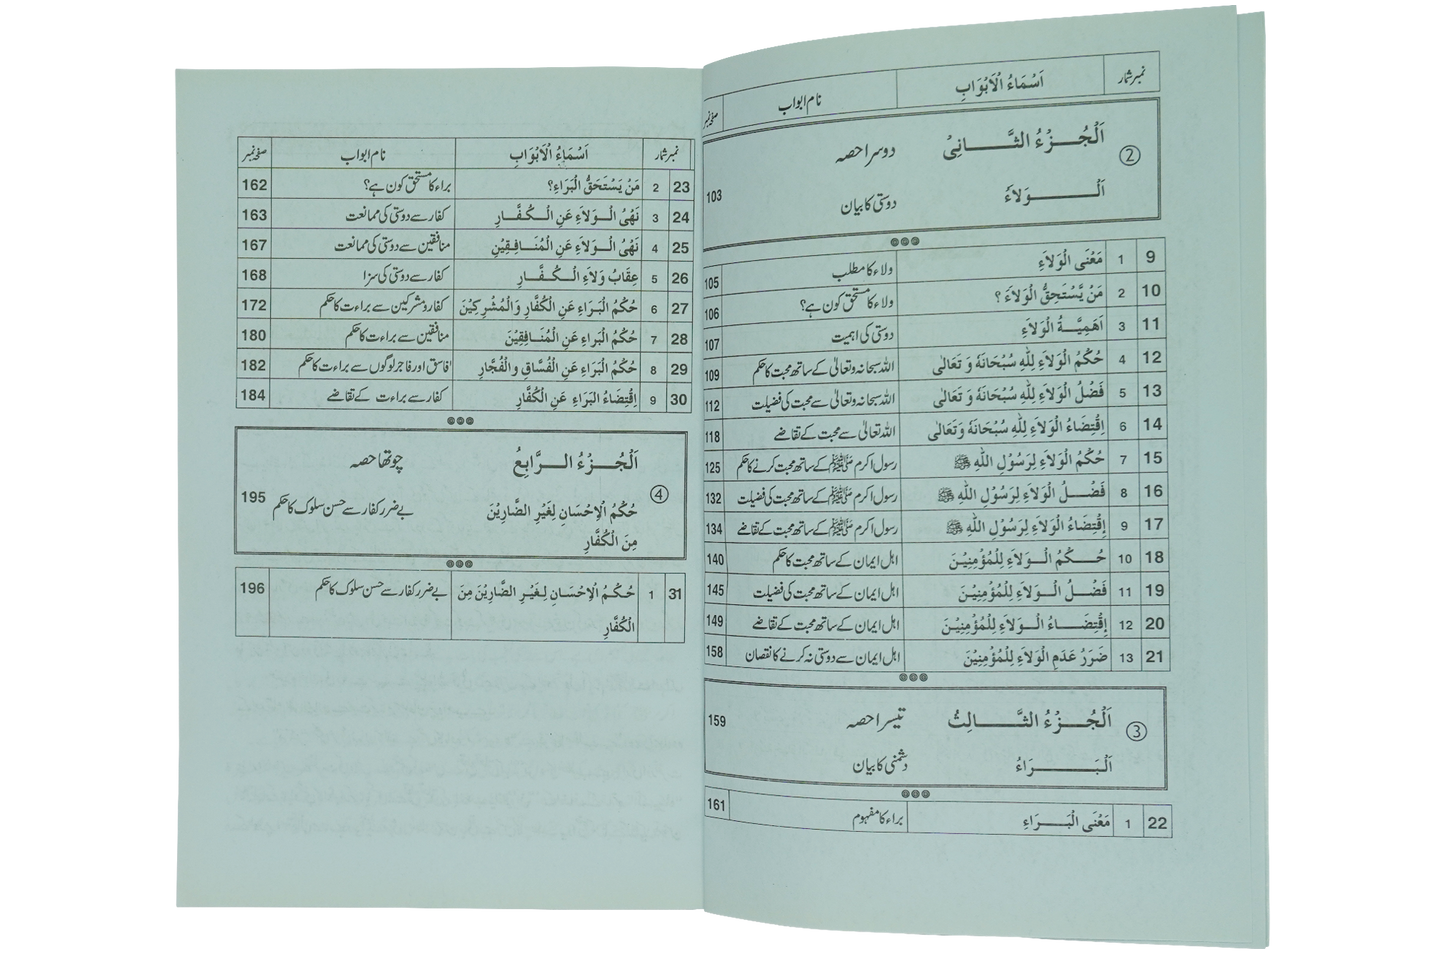 نمبر شمار اَسْمَاءُ الْاَبْوَابِ نام ابواب صفحہ نمبر
② اَلْجُزْءُ الثَّانِیْ دوسرا حصہ
اَلْوَلَاءُ دوستی کا بیان 103
9 1 مَعْنَی الْوَلَاءِ ولاء کا مطلب 105
10 2 مَنْ یَّسْتَحِقُّ الْوَلَاءَ ؟ ولاء کا مستحق کون ہے؟ 106
11 3 اَهَمِیَّةُ الْوَلَاءِ دوستی کی اہمیت 107
12 4 حُكْمُ الْوَلَاءِ لِلّٰهِ سُبْحَانَهٗ وَ تَعَالٰی اللہ سبحانہ وتعالیٰ کے ساتھ محبت کا حکم 109
13 5 فَضْلُ الْوَلَاءِ لِلّٰهِ سُبْحَانَهٗ وَ تَعَالٰی اللہ سبحانہ وتعالیٰ سے محبت کی فضیلت 112
14 6 اِقْتِضَاءُ الْوَلَاءِ لِلّٰهِ سُبْحَانَهٗ وَ تَعَالٰی اللہ تعالیٰ سے محبت کے تقاضے 118
15 7 حُكْمُ الْوَلَاءِ لِرَسُوْلِ اللهِ ﷺ رسول اکرم ﷺ کے ساتھ محبت کرنے کا حکم 125
16 8 فَضْلُ الْوَلَاءِ لِرَسُوْلِ اللهِ ﷺ رسول اکرم ﷺ کے ساتھ محبت کی فضیلت 132
17 9 اِقْتِضَاءُ الْوَلَاءِ لِرَسُوْلِ اللهِ ﷺ رسول اکرم ﷺ کے ساتھ محبت کے تقاضے 134
18 10 حُكْمُ الْوَلَاءِ لِلْمُؤْمِنِیْنَ اہل ایمان کے ساتھ محبت کا حکم 140
19 11 فَضْلُ الْوَلَاءِ لِلْمُؤْمِنِیْنَ اہل ایمان کے ساتھ محبت کی فضیلت 145
20 12 اِقْتِضَاءُ الْوَلَاءِ لِلْمُؤْمِنِیْنَ اہل ایمان کے ساتھ محبت کے تقاضے 149
21 13 ضَرَرُ عَدَمِ الْوَلَاءِ لِلْمُؤْمِنِیْنَ اہل ایمان سے دوستی نہ کرنے کا نقصان 158
③ اَلْجُزْءُ الثَّالِثُ تیسرا حصہ 159
اَلْبَرَاءُ دشمنی کا بیان
22 1 مَعْنَی الْبَرَاءِ براء کا مفہوم 161
نمبر شمار اَسْمَاءُ الْاَبْوَابِ نام ابواب صفحہ نمبر
23 2 مَنْ یَسْتَحَقُّ الْبَرَاءِ؟ براء کا مستحق کون ہے؟ 162
24 3 نَهْیُ الْوَلَاءِ عَنِ الْكُفَّارِ کفار سے دوستی کی ممانعت 163
25 4 نَهْیُ الْوَلَاءِ عَنِ الْمُنَافِقِیْنِ منافقین سے دوستی کی ممانعت 167
26 5 عِقَابُ وَلَاءِ الْكُفَّارِ کفار سے دوستی کی سزا 168
27 6 حُكْمُ الْبَرَاءِ عَنِ الْكُفَّارِ وَالْمُشْرِكِیْنَ کفار و مشرکین سے براءت کا حکم 172
28 7 حُكْمُ الْبَرَاءِ عَنِ الْمُنَافِقِیْنَ منافقین سے براءت کا حکم 180
29 8 حُكْمُ الْبَرَاءِ عَنِ الْفُسَّاقِ والْفُجَّارِ فاسق اور فاجر لوگوں سے براءت کا حکم 182
30 9 اِقْتِضَاءُ البَرَاءِ عَنِ الْكُفَّارِ کفار سے براءت کے تقاضے 184
④ اَلْجُزْءُ الرَّابِعُ چوتھا حصہ
حُكْمُ الْاِحْسَانِ لِغَیْرِ الضَّارِیْنَ بے ضرر کفار سے حسن سلوک کا حکم 195
مِنَ الْكُفَّارِ
31 1 حُكْمُ الْاِحْسَانِ لِغَیْرِ الضَّارِیْنَ مِنَ بے ضرر کفار سے حسن سلوک کا حکم 196
الْكُفَّارِ